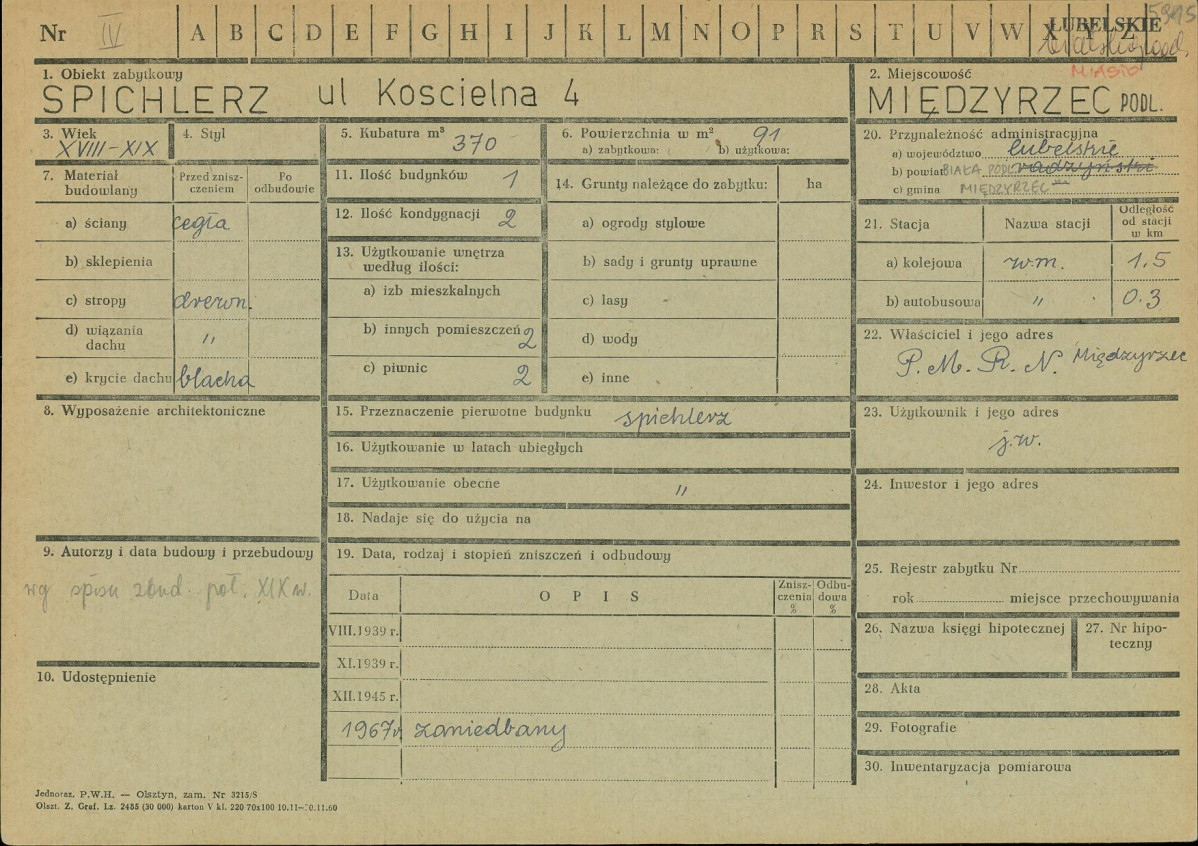 Nr IV A B C D E F G H I J K L M N O P R S T U V W X Y Z LUBELSKIE
MIASTO
1. Obiekt zabytkowy
SPICHLERZ ul Koscielna 4
2. Miejscowość
MIĘDZYRZEC PODL.
3. Wiek
XVIII-XIX
4. Styl
5. Kubatura m³ 370
6. Powierzchnia w m² 91
a) zabytkowa: b) użytkowa:
7. Materiał budowlany
Przed znisz-
czeniem
Po
odbudowie
a) ściany cegła
b) sklepienia
c) stropy drewn.
d) wiązania
dachu "
e) krycie dachu blacha
8. Wyposażenie architektoniczne
9. Autorzy i data budowy i przebudowy
wg spisu zbud. poł. XIX w.
10. Udostępnienie
11. Ilość budynków 1
12. Ilość kondygnacji 2
13. Użytkowanie wnętrza
według ilości:
a) izb mieszkalnych
b) innych pomieszczeń 2
c) piwnic 2
14. Grunty należące do zabytku: ha
a) ogrody stylowe
b) sady i grunty uprawne
c) lasy
d) wody
e) inne
15. Przeznaczenie pierwotne budynku spichlerz
16. Użytkowanie w latach ubiegłych
17. Użytkowanie obecne "
18. Nadaje się do użycia na
19. Data, rodzaj i stopień zniszczeń i odbudowy
Data OPIS
Znisz-
czenia
%
Odbu-
dowa
%
VIII.1939 r.
XI.1939 r.
XII.1945 r.
1967r zaniedbany
20. Przynależność administracyjna
a) województwo lubelskie
b) powiat BIAŁA PODL. radzyński
c) gmina MIĘDZYRZEC
21. Stacja Nazwa stacji
Odległość
od stacji
w km
a) kolejowa w.m. 1.5
b) autobusowa " 0.3
22. Właściciel i jego adres
P. M. R. N. Międzyrzec
23. Użytkownik i jego adres
j.w.
24. Inwestor i jego adres
25. Rejestr zabytku Nr
rok miejsce przechowywania
26. Nazwa księgi hipotecznej
27. Nr hipo-
teczny
28. Akta
29. Fotografie
30. Inwentaryzacja pomiarowa
Jednoraz. P.W.H. — Olsztyn, zam. Nr 3215/S
Olszt. Z. Graf. Lz. 2485 (30 000) karton V kl. 220 70x100